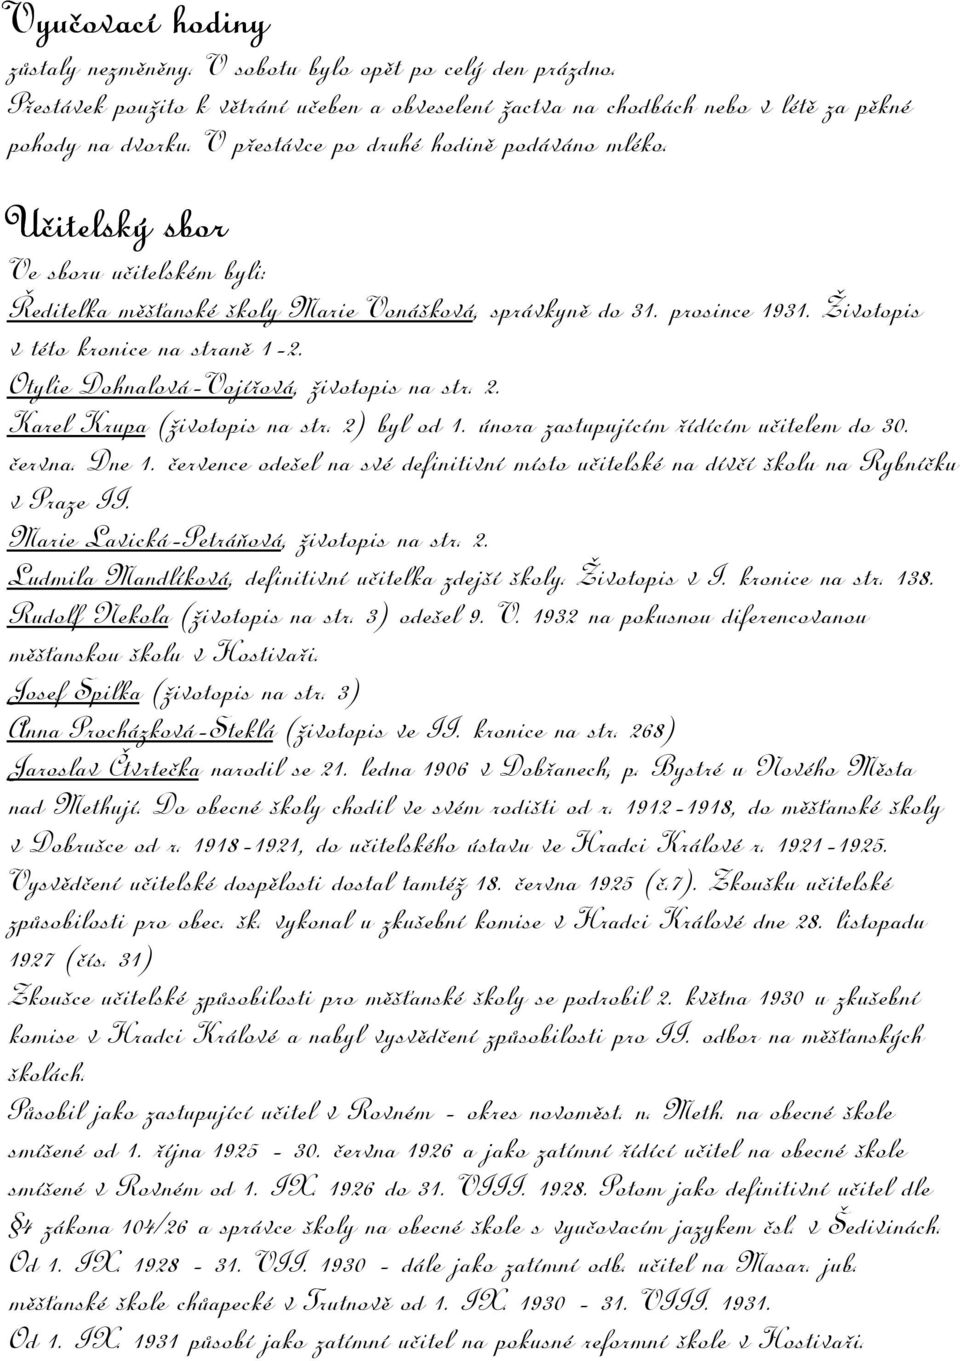 Vyučovací hodiny
zůstaly nezměněny. V sobotu bylo opět po celý den prázdno.
Přestávek použito k větrání učeben a obveselení žactva na chodbách nebo v létě za pěkné
pohody na dvorku. V přestávce po druhé hodině podáváno mléko.
Učitelský sbor
Ve sboru učitelském byli:
Ředitelka měšťanské školy Marie Vonášková, správkyně do 31. prosince 1931. Životopis
v této kronice na straně 1-2.
Otylie Dohnalová-Vojířová, životopis na str. 2.
Karel Krupa (životopis na str. 2) byl od 1. února zastupujícím řídícím učitelem do 30.
června. Dne 1. července odešel na své definitivní místo učitelské na dívčí školu na Rybníčku
v Praze II.
Marie Lavická-Petráňová, životopis na str. 2.
Ludmila Mandlíková, definitivní učitelka zdejší školy. Životopis v I. kronice na str. 138.
Rudolf Nekola (životopis na str. 3) odešel 9. V. 1932 na pokusnou diferencovanou
měšťanskou školu v Hostivaři.
Josef Spilka (životopis na str. 3)
Anna Procházková-Steklá (životopis ve II. kronice na str. 268)
Jaroslav Čtvrtečka narodil se 21. ledna 1906 v Dobřanech, p. Bystré u Nového Města
nad Methují. Do obecné školy chodil ve svém rodišti od r. 1912-1918, do měšťanské školy
v Dobrušce od r. 1918-1921, do učitelského ústavu ve Hradci Králové r. 1921-1925.
Vysvědčení učitelské dospělosti dostal tamtéž 18. června 1925 (č.7). Zkoušku učitelské
způsobilosti pro obec. šk. vykonal u zkušební komise v Hradci Králové dne 28. listopadu
1927 (čís. 31)
Zkoušce učitelské způsobilosti pro měšťanské školy se podrobil 2. května 1930 u zkušební
komise v Hradci Králové a nabyl vysvědčení způsobilosti pro II. odbor na měšťanských
školách.
Působil jako zastupující učitel v Rovném - okres novoměst. n. Meth. na obecné škole
smíšené od 1. října 1925 - 30. června 1926 a jako zatímní řídící učitel na obecné škole
smíšené v Rovném od 1. IX. 1926 do 31. VIII. 1928. Potom jako definitivní učitel dle
§4 zákona 104/26 a správce školy na obecné škole s vyučovacím jazykem čsl. v Šedivinách.
Od 1. IX. 1928 - 31. VII. 1930 - dále jako zatímní odb. učitel na Masar. jub.
měšťanské škole chůapecké v Trutnově od 1. IX. 1930 - 31. VIII. 1931.
Od 1. IX. 1931 působí jako zatímní učitel na pokusné reformní škole v Hostivaři.